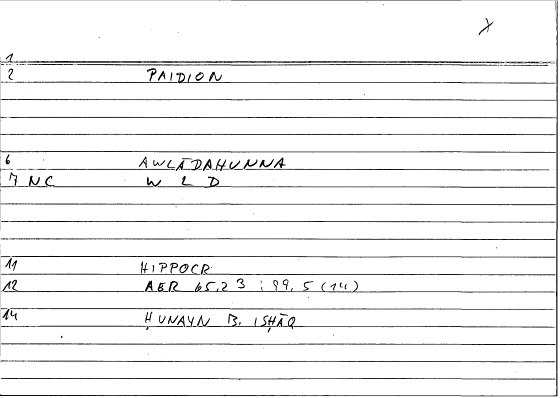 X
1
2 PAIDION
6 AWLĀDAHUNNA
7 NC W L D
11 HIPPOCR
12 AER 65.23 : 99.5 (14)
14 ḤUNAYN B. ISḤĀQ